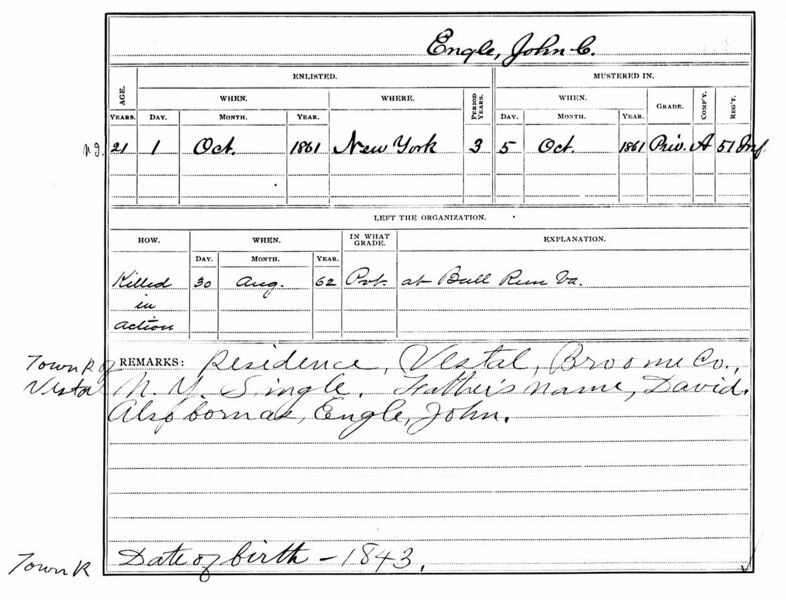 Engle, John C.
ENLISTED. MUSTERED IN.
AGE. WHEN. WHERE. PERIOD YEARS. WHEN. GRADE. COMP'Y. REG'T.
YEARS. DAY. MONTH. YEAR. DAY. MONTH. YEAR.
21 1 Oct. 1861 New York 3 5 Oct. 1861 Priv. A 51 Inf
LEFT THE ORGANIZATION.
HOW. WHEN. IN WHAT GRADE. EXPLANATION.
DAY. MONTH. YEAR.
Killed 30 Aug. 62 Pvt. at Bull Run Va.
in
action
Town R of REMARKS: Residence, Vestal, Broome Co.,
Vestal N. Y. Single. Father's name, David.
Also born as, Engle, John.
Town R Date of birth - 1843.